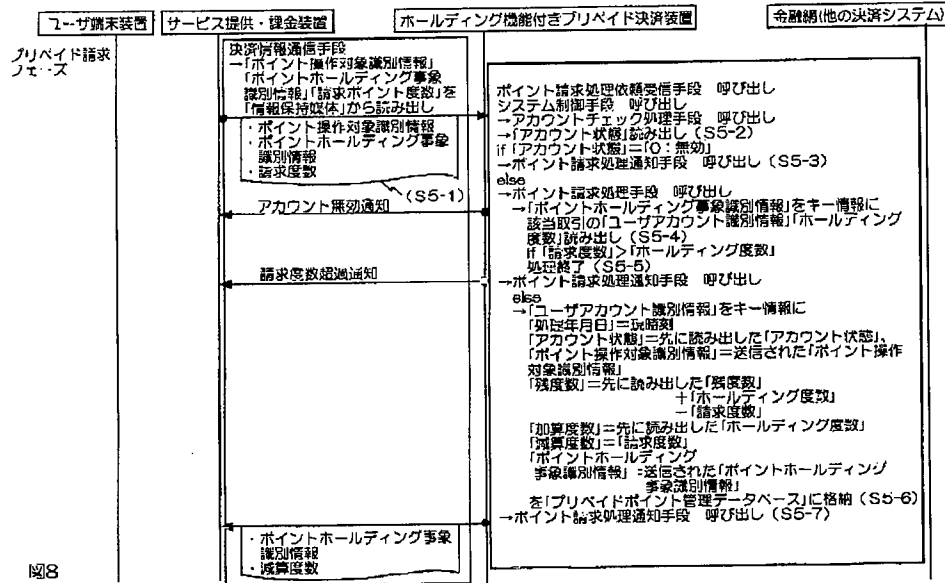 ユーザ端末装置
サービス提供・課金装置
ホールディング機能付きプリペイド決済装置
金融網(他の決済システム)
プリペイド請求
フェーズ
決済情報通信手段
→「ポイント操作対象識別情報」
「ポイントホールディング事象
識別情報」「請求ポイント度数」を
「情報保持媒体」から読み出し
・ポイント操作対象識別情報
・ポイントホールディング事象
識別情報
・請求度数
(S5-1)
アカウント無効通知
請求度数超過通知
ポイント請求処理依頼受信手段 呼び出し
システム制御手段 呼び出し
→アカウントチェック処理手段 呼び出し
→「アカウント状態」読み出し(S5-2)
if「アカウント状態」=「0:無効」
→ポイント請求処理通知手段 呼び出し(S5-3)
else
→ポイント請求処理手段 呼び出し
→「ポイントホールディング事象識別情報」をキー情報に
該当取引の「ユーザアカウント識別情報」「ホールディング
度数」読み出し(S5-4)
if「請求度数」>「ホールディング度数」
処理終了(S5-5)
→ポイント請求処理通知手段 呼び出し
else
→「ユーザアカウント識別情報」をキー情報に
「処理年月日」=現時刻
「アカウント状態」=先に読み出した「アカウント状態」、
「ポイント操作対象識別情報」=送信された「ポイント操作
対象識別情報」
「残度数」=先に読み出した「残度数」
+「ホールディング度数」
-「請求度数」
「加算度数」=先に読み出した「ホールディング度数」
「減算度数」=「請求度数」
「ポイントホールディング
事象識別情報」=送信された「ポイントホールディング
事象識別情報」
を「プリペイドポイント管理データベース」に格納(S5-6)
→ポイント請求処理通知手段 呼び出し(S5-7)
・ポイントホールディング事象
識別情報
・減算度数
図8